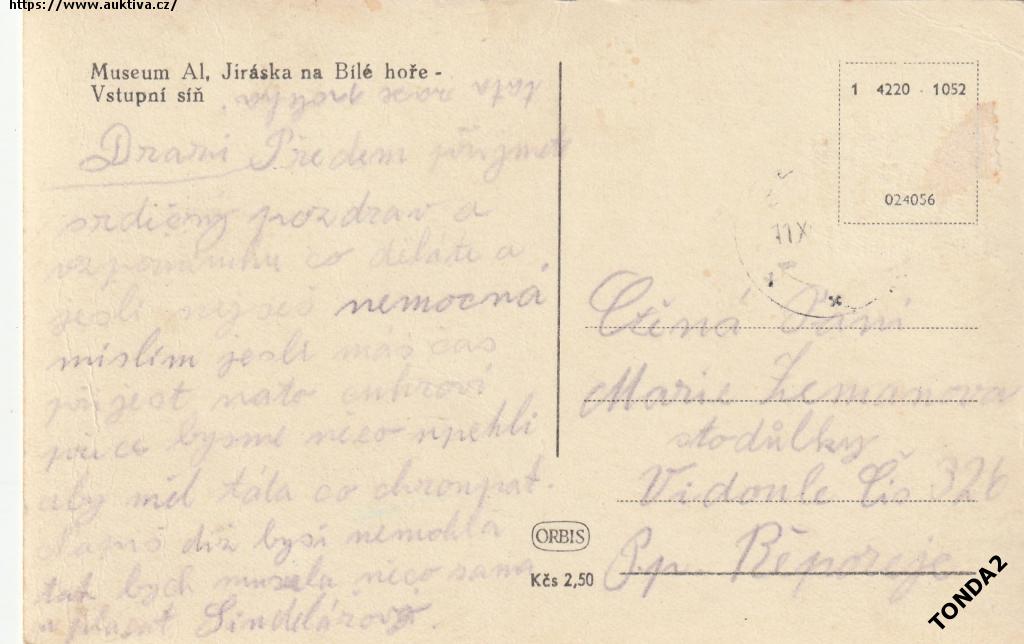 https://www.auktiva.cz/
Museum Al. Jiráska na Bílé hoře -
Vstupní síň
Drazí Předem přijmete
srdičný pozdrav a
vzpomínku co děláte a
jesli nejseš nemocná
mislím jesli máš čas
přijest nato cukroví
bysme neco upekli
aby měl táta co chroupat.
diz bysi nemohla
tak bych musela neco sama
Šindelářová.
1 4220 1052
024056
11 X
Ctěná Paní
Marie Zemanova
stodůlky
Vidoule Čis 326
Pp. Řeporeje
ORBIS
Kčs 2,50
TONDA2